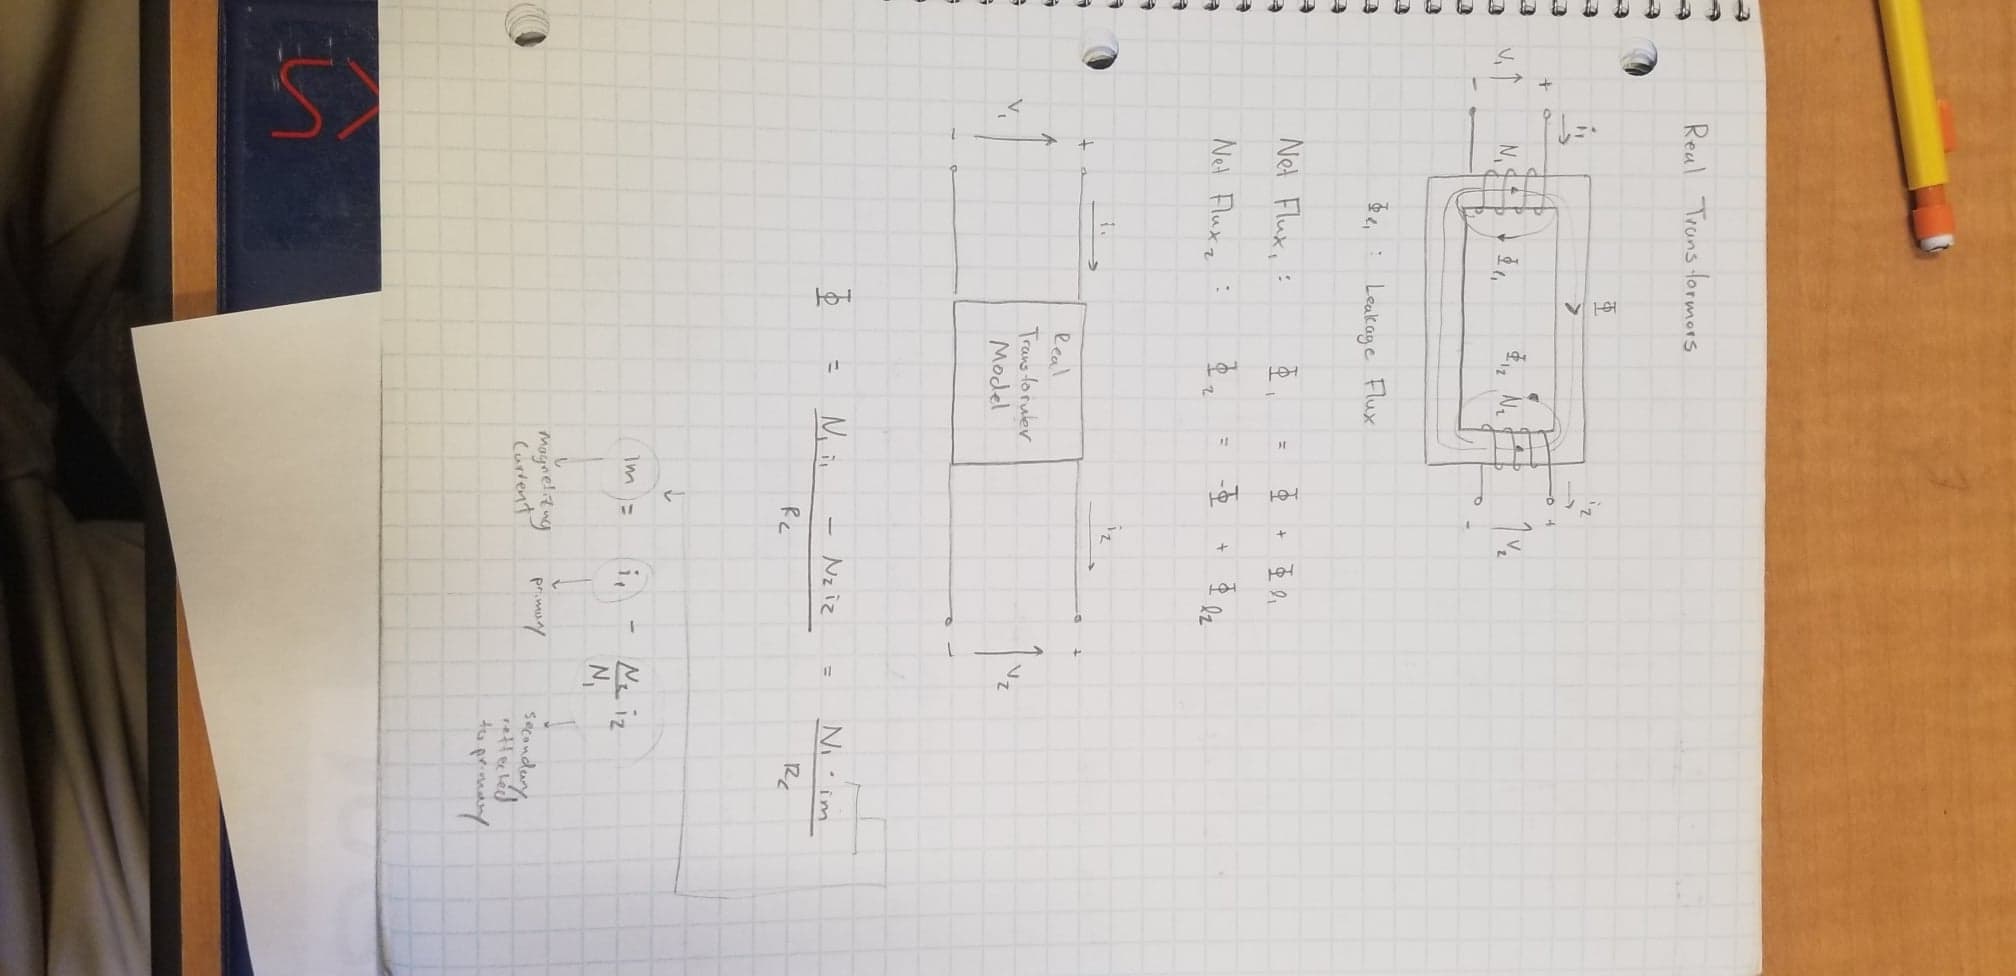 Real Transformers
Φ
i₁
i₂
+
+
V₁
N₁
Φℓ₁
Φℓ₂
N₂
V₂
-
-
Φℓ₁ : Leakage Flux
Net Flux₁ : Φ₁ = Φ + Φℓ₁
Net Flux₂ : Φ₂ = -Φ + Φℓ₂
i₁
i₂
+
+
Real
Transformer
Model
V₁
V₂
-
-
Φ = (N₁i₁ - N₂i₂)/Rc = (N₁ · im)/Rc
im = i₁ - N₂/N₁ i₂
Magnetizing
Current
primary
secondary
reflected
to primary